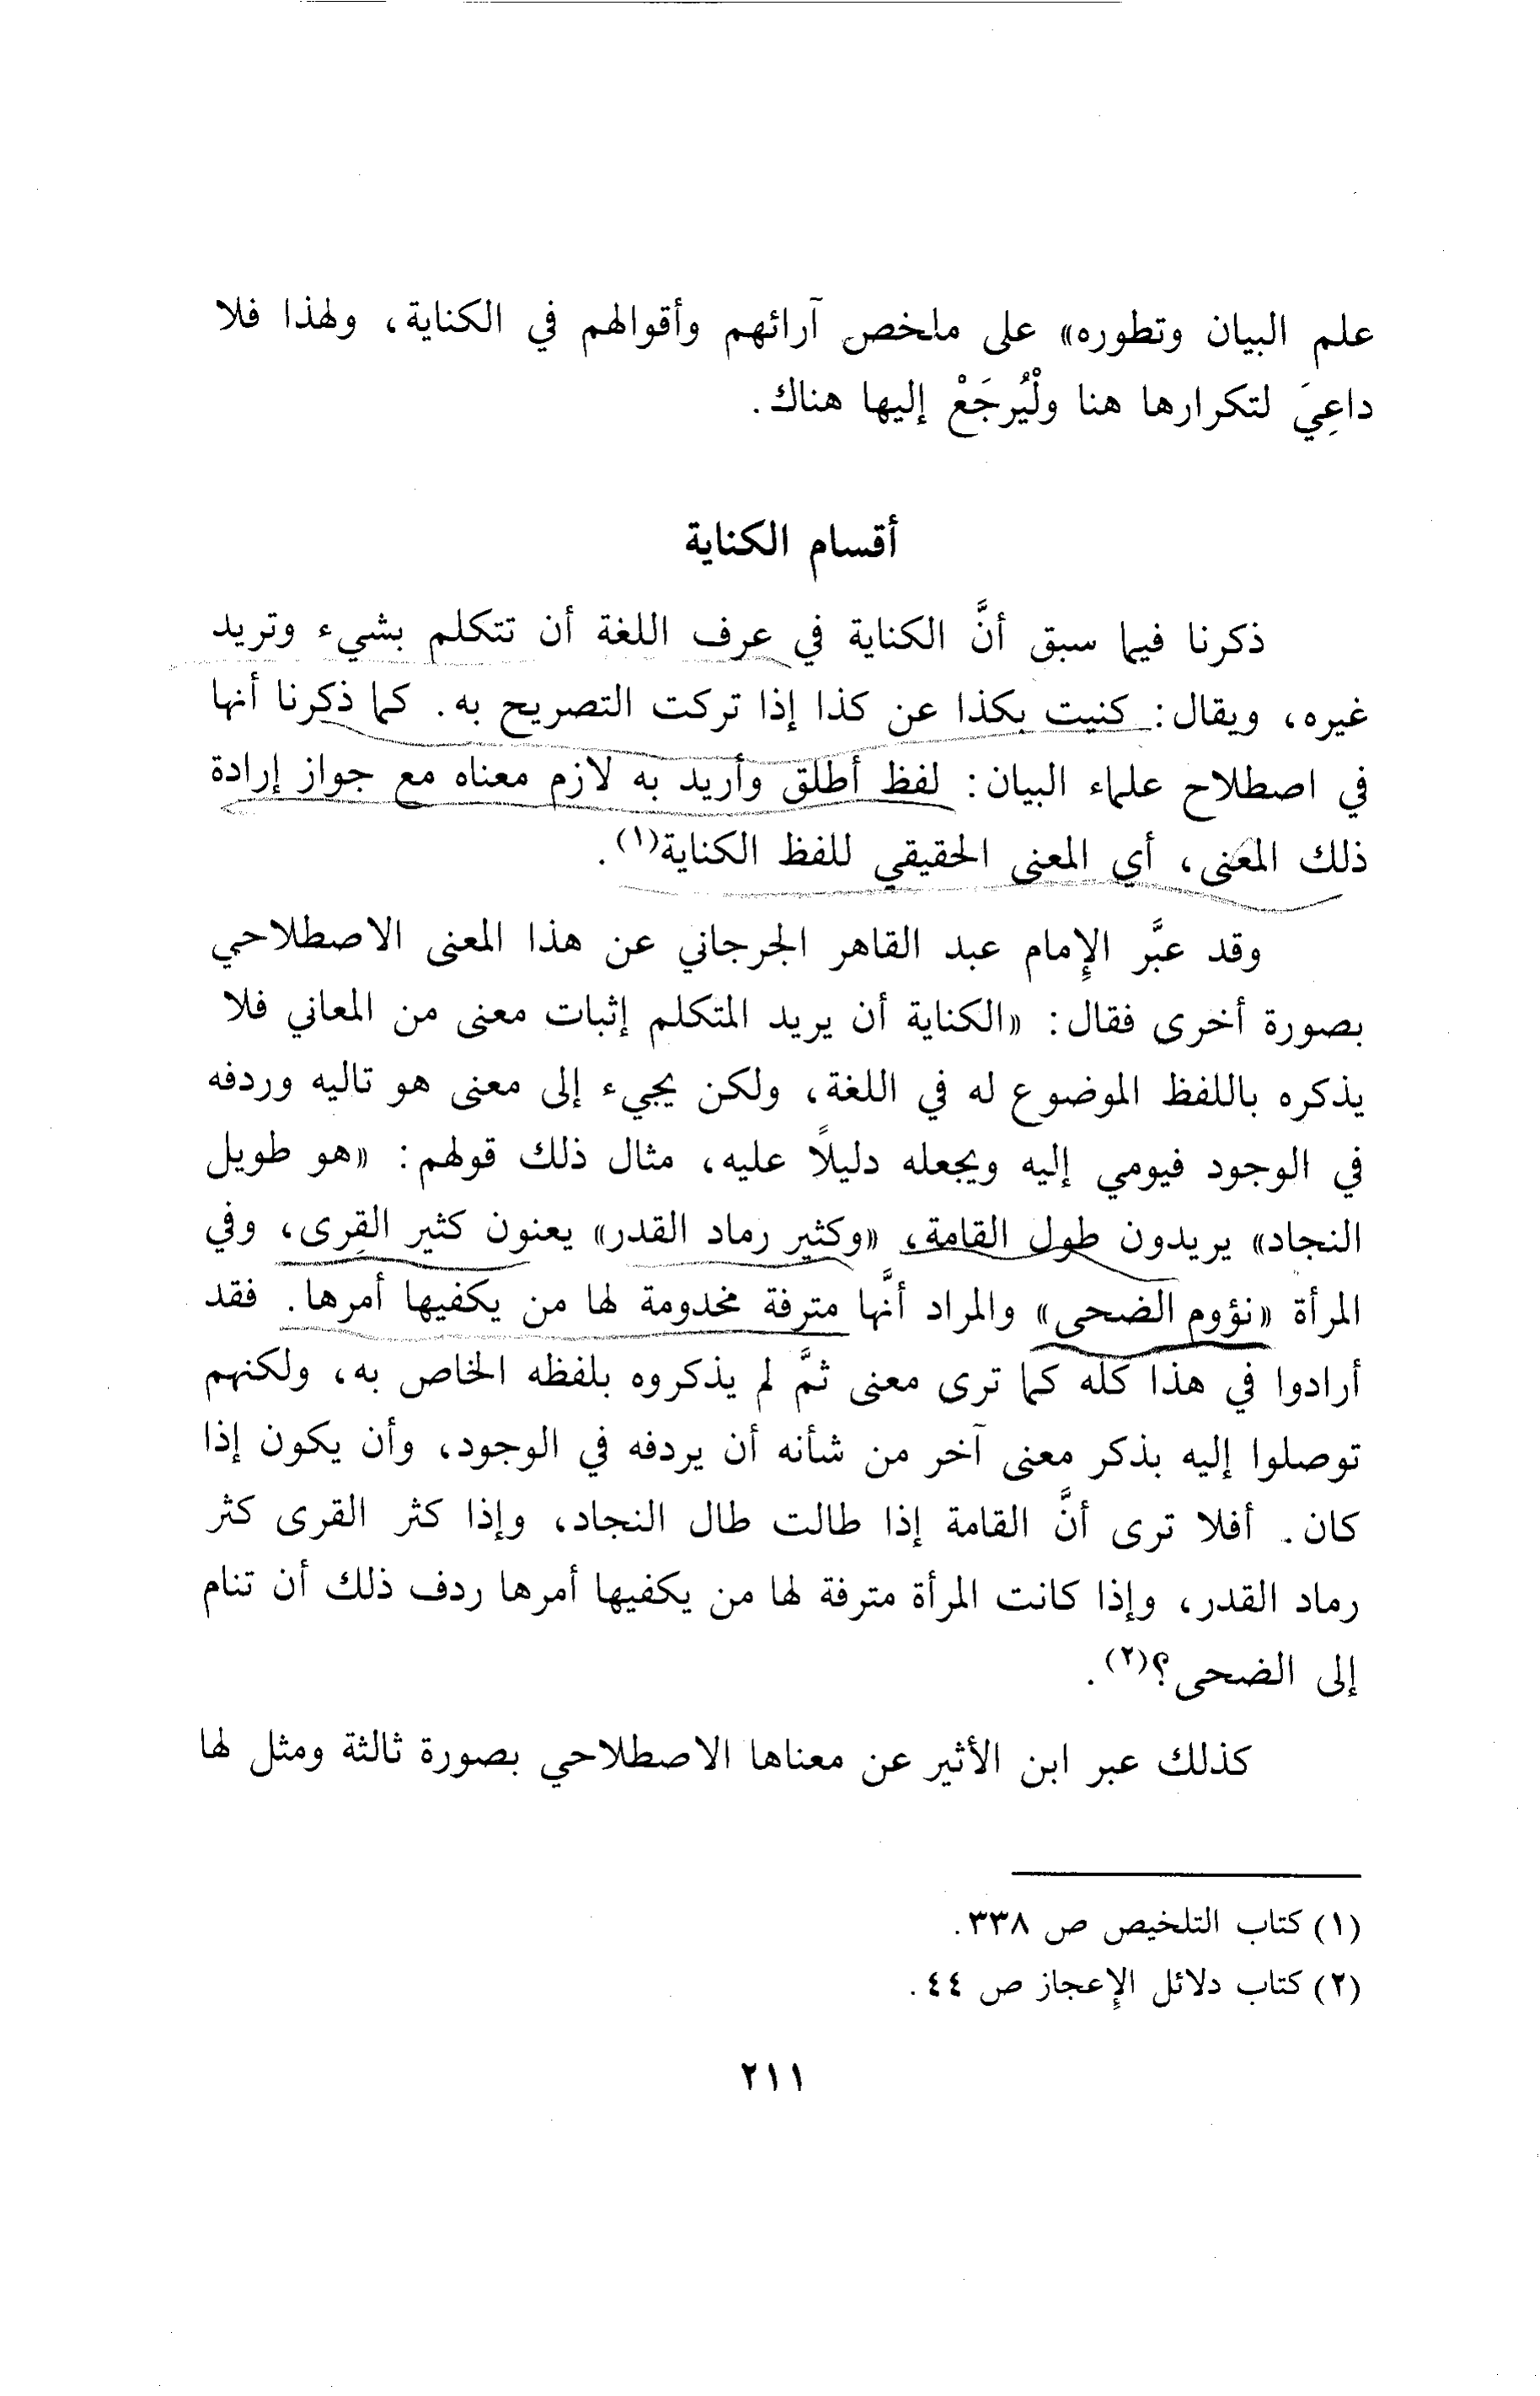 علم البيان وتطوره» على ملخص آرائهم وأقوالهم في الكناية، ولهذا فلا
داعِيَ لتكرارها هنا ولْيُرجَعْ إليها هناك.
أقسام الكناية
ذكرنا فيما سبق أنَّ الكناية في عرف اللغة أن تتكلم بشيء وتريد
غيره، ويقال: كنيت بكذا عن كذا إذا تركت التصريح به. كما ذكرنا أنها
في اصطلاح علماء البيان: لفظ أطلق وأريد به لازم معناه مع جواز إرادة
ذلك المعنى، أي المعنى الحقيقي للفظ الكناية(١).
وقد عبَّر الإمام عبد القاهر الجرجاني عن هذا المعنى الاصطلاحي
بصورة أخرى فقال: «الكناية أن يريد المتكلم إثبات معنى من المعاني فلا
يذكره باللفظ الموضوع له في اللغة، ولكن يجيء إلى معنى هو تاليه وردفه
في الوجود فيومي إليه ويجعله دليلًا عليه، مثال ذلك قولهم: «هو طويل
النجاد» يريدون طول القامة، «وكثير رماد القدر» يعنون كثير القِرى، وفي
المرأة «نؤوم الضحى» والمراد أنَّها مترفة مخدومة لها من يكفيها أمرها. فقد
أرادوا في هذا كله كما ترى معنى ثمَّ لم يذكروه بلفظه الخاص به، ولكنهم
توصلوا إليه بذكر معنى آخر من شأنه أن يردفه في الوجود، وأن يكون إذا
كان. أفلا ترى أنَّ القامة إذا طالت طال النجاد، وإذا كثر القرى كثر
رماد القدر، وإذا كانت المرأة مترفة لها من يكفيها أمرها ردف ذلك أن تنام
إلى الضحى؟(٢).
كذلك عبر ابن الأثير عن معناها الاصطلاحي بصورة ثالثة ومثل لها
(١) كتاب التلخيص ص ٣٣٨.
(٢) كتاب دلائل الإعجاز ص ٤٤.
٢١١